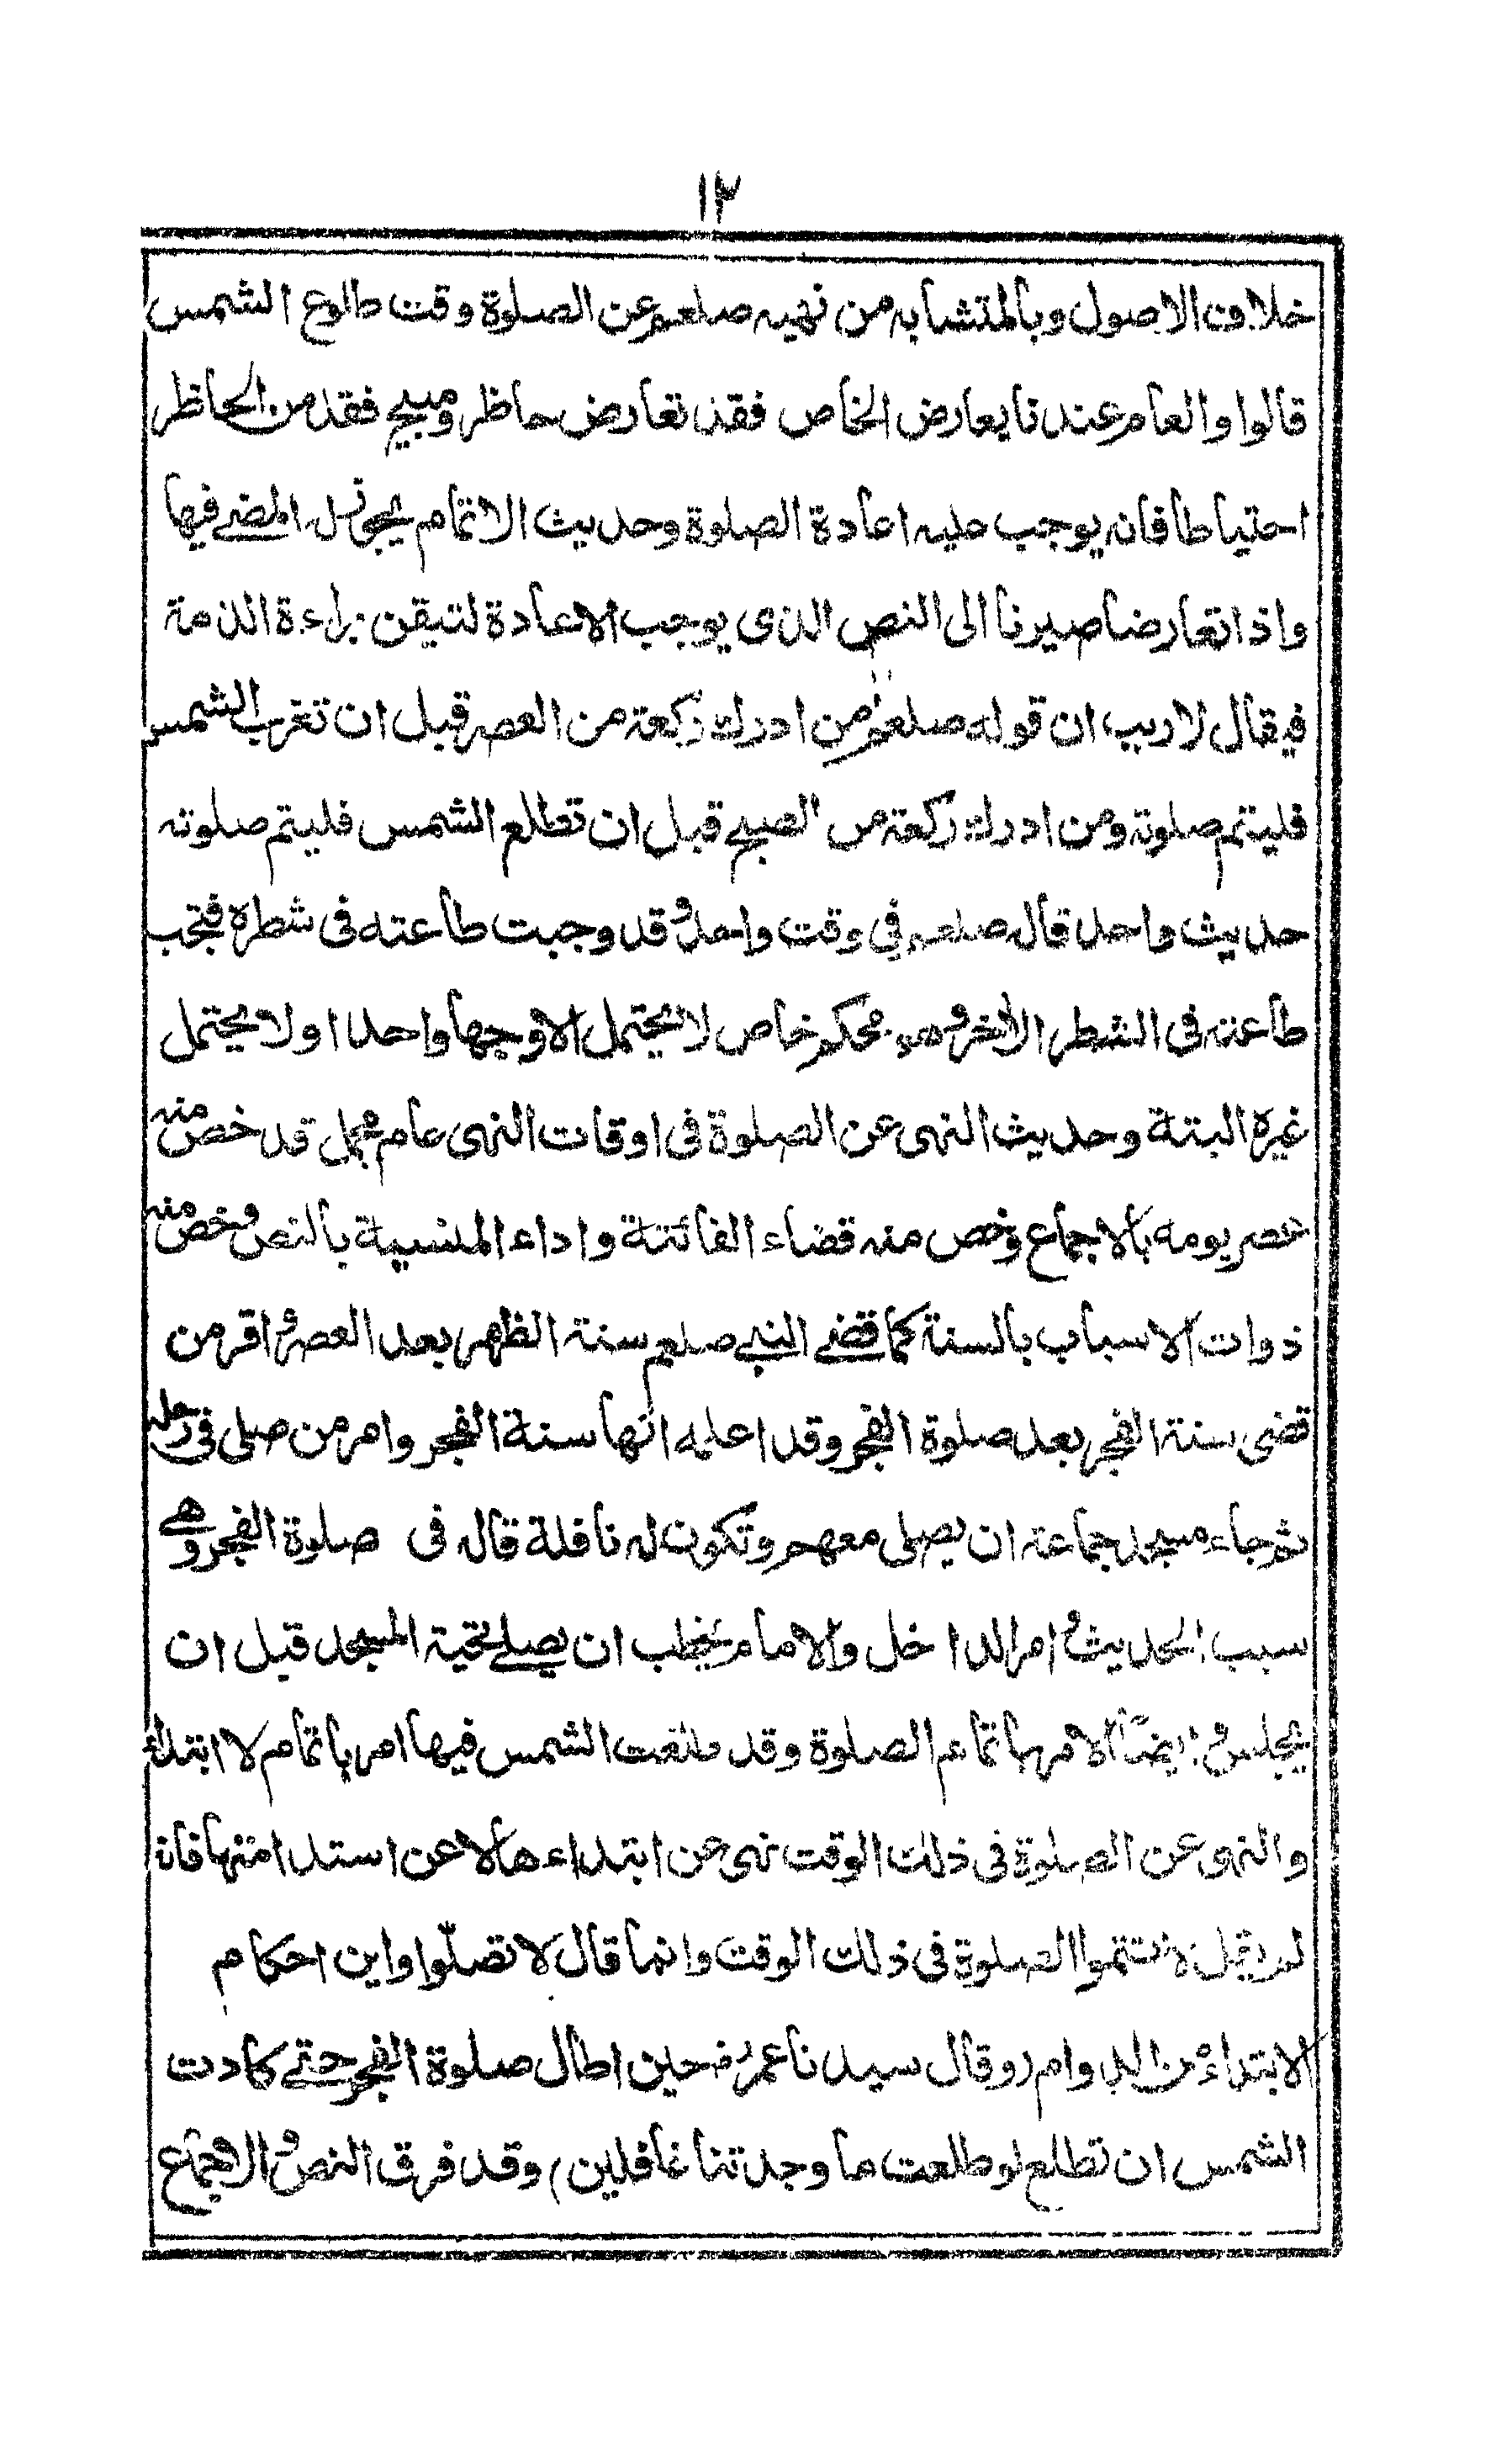 ١٢
خلاف الاصول وبالمتشابه من نهيه صلعم عن الصلوة وقت طلوع الشمس
قالوا والعام عندنا يعارض الخاص فقد تعارض حاظر ومبيح فقد من الحاظر
احتياطا فانه يوجب عليه اعادة الصلوة وحديث الاتمام يجوز له المضى فيها
واذا تعارضا صيرنا الى النص الذى يوجب الاعادة لتيقن براءة الذمة
فيقال لا ريب ان قوله صلعم من ادرك ركعة من العصر قبل ان تغرب الشمس
فليتم صلوته ومن ادرك ركعة من الصبح قبل ان تطلع الشمس فليتم صلوته
حديث واحد قاله صلعم فى وقت واحد وقد وجبت طاعته فى شطره فتجب
طاعته فى الشطر الاخر وهو محكم خاص لا يحتمل الا وجها واحدا ولا يحتمل
غيره البتة وحديث النهى عن الصلوة فى اوقات النهى عام مجمل قد خص منه
عصر يومه بالاجماع وخص منه قضاء الفائتة واداء المنسية بالنص وخص منه
ذوات الاسباب بالسنة كما قضى النبى صلعم سنة الظهر بعد العصر واقر من
قضى سنة الفجر بعد صلوة الفجر وقد اعلمه انها سنة الفجر وامر من صلى فى رحله
ثم جاء مسجد جماعة ان يصلى معهم وتكون له نافلة قاله فى صلوة الفجر وهى
سبب الحديث وامر الداخل والامام يخطب ان يصلى تحية المسجد قبل ان
يجلس وايضا الامر باتمام الصلوة وقد طلعت الشمس فيها امر باتمام لا ابتداء
والنهى عن الصلوة فى ذلك الوقت نهى عن ابتداءها لا عن استدامتها فانه
لم يقل لا تتموا الصلوة فى ذلك الوقت وانما قال لا تصلّوا واين احكام
الابتداء من الدوام (وقال سيدنا عمر رض حين اطال صلوة الفجر حتى كادت
الشمس ان تطلع لو طلعت ما وجدتنا غافلين) وقد فرق النص والاجماع